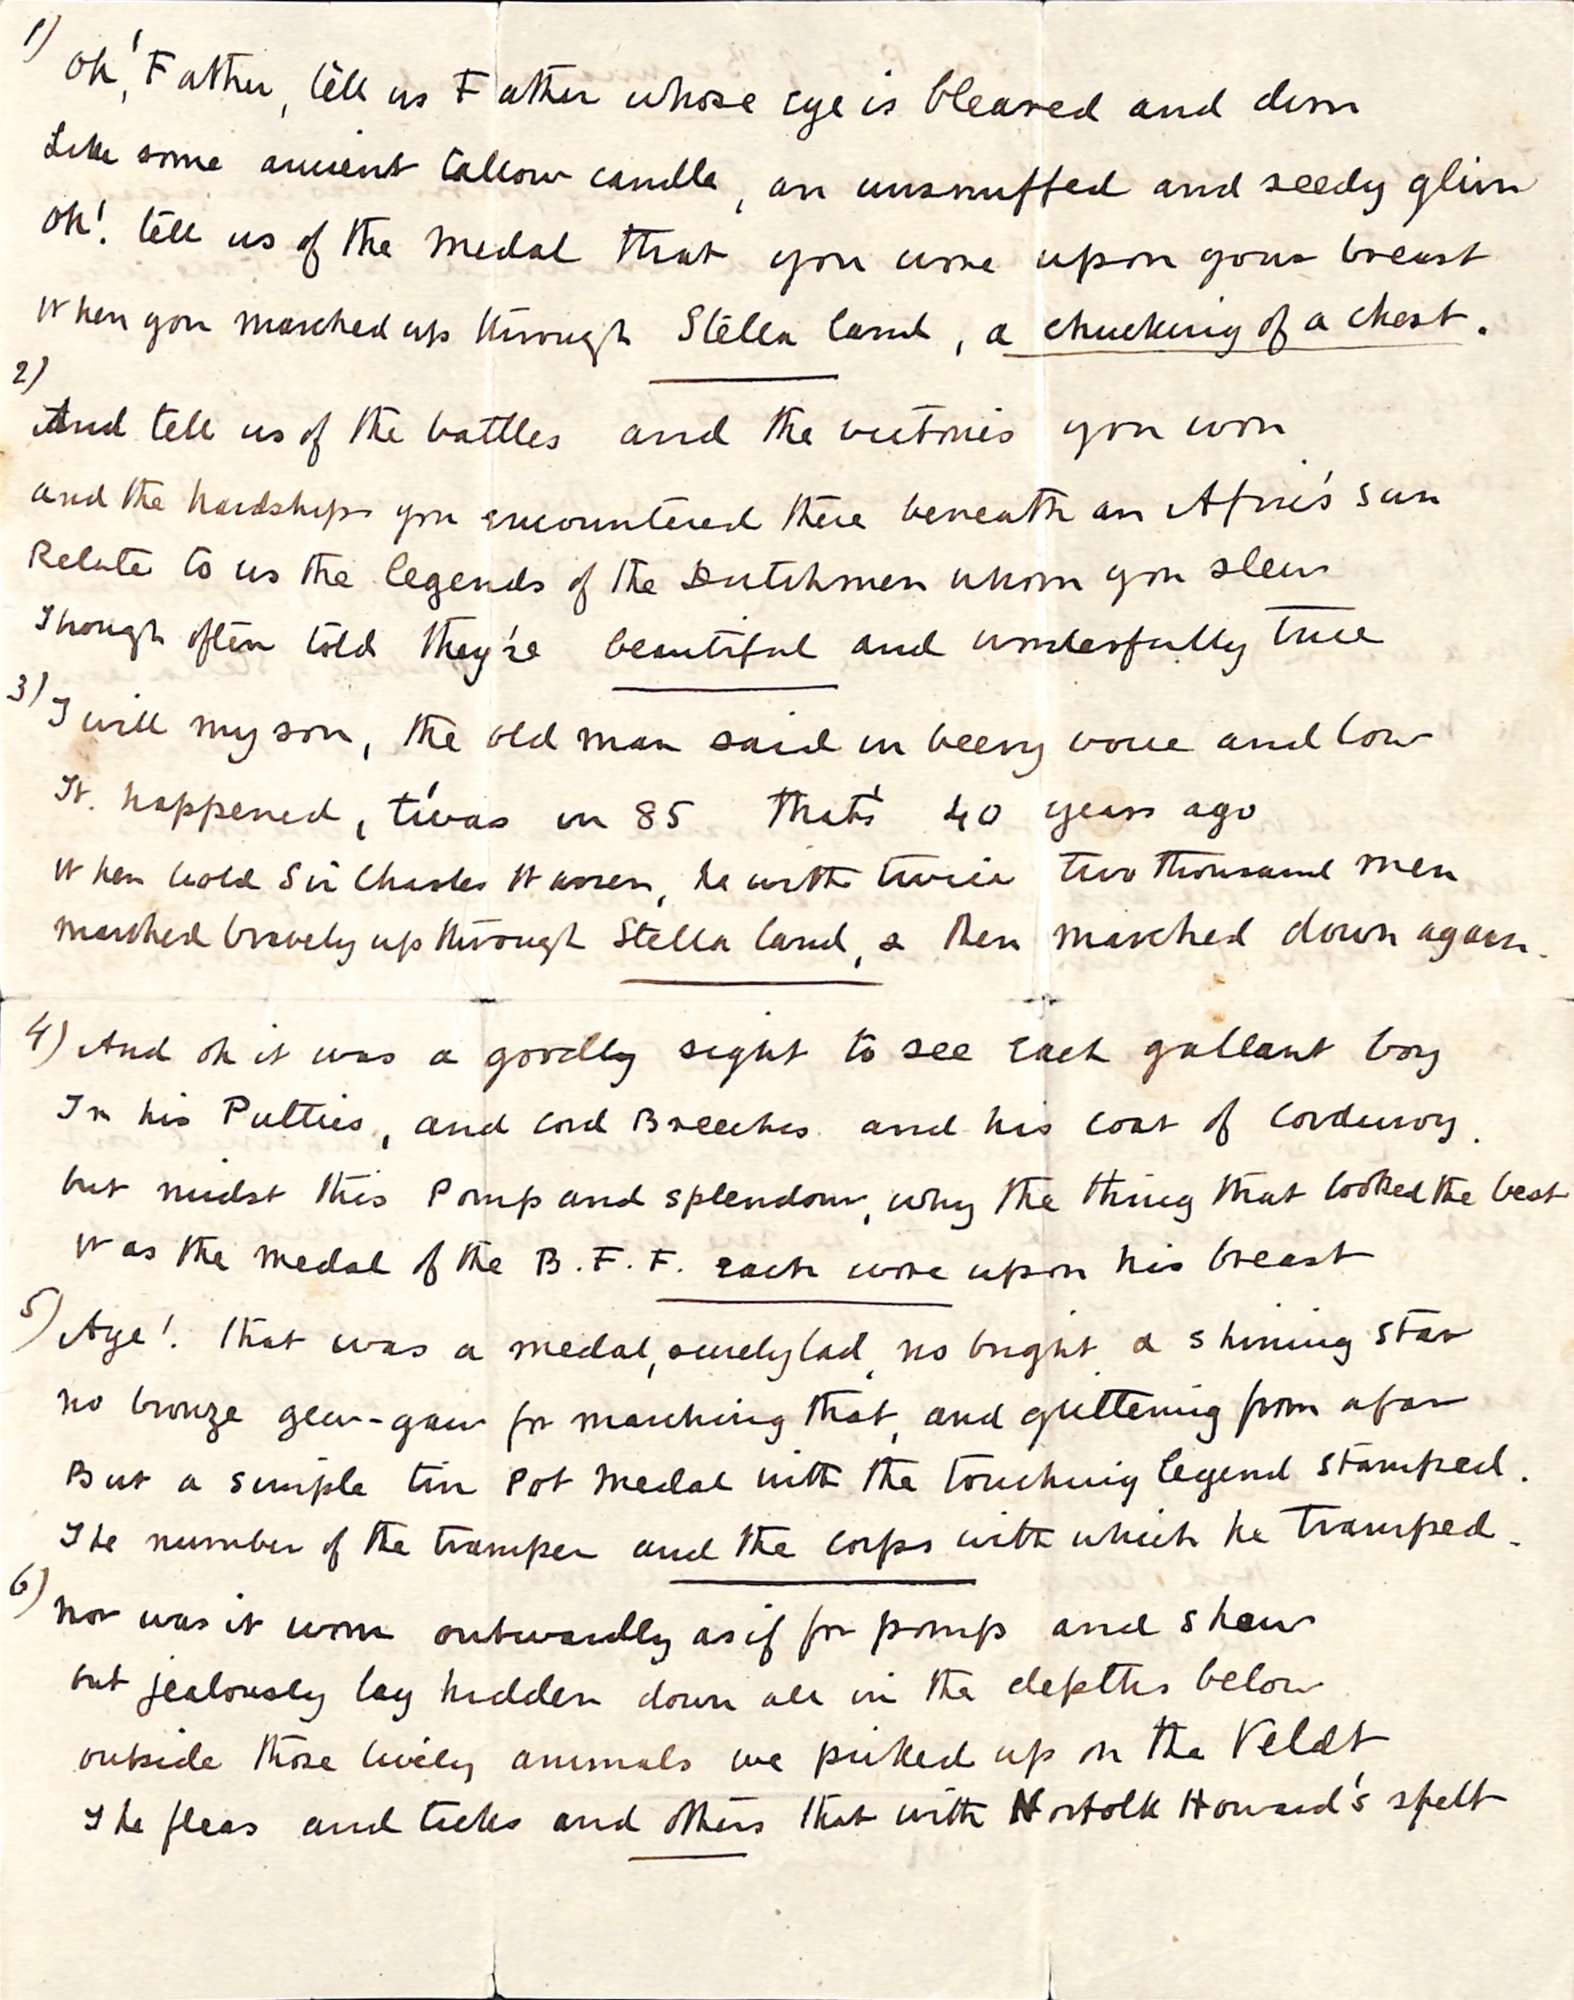 1) Oh!, Father, tell us Father whose eye is bleared and dim
Like some ancient tallow candle, an unsnuffed and seedy glim
Oh!. tell us of the medal that you wore upon your breast
When you marched up through Stella land, a chucking of a chest.
2)
And tell us of the battles and the victories you won
and the hardships you encountered there beneath an Afric's sun
Relate to us the legends of the Dutchmen whom you slew
Though often told they're beautiful and wonderfully true
3) I will my son, the old man said in beery voice and low
It. happened, t'was in 85 that's 40 years ago
When bold Sir Charles Warren, he with twice two thousand men
marched bravely up through Stella land, & then marched down again.
4) And oh it was a goodly sight to see each gallant boy
In his Putties, and cord Breeches and his coat of corduroy.
but midst this Pomp and splendour, why the thing that looked the best
Was the medal of the B.F.F. each wore upon his breast
5) Aye!. that was a medal, surely lad, no bright a shining star
no bronze gew-gaw for marching that, and glittering from afar
But a simple tin Pot medal with the touching legend stamped.
The number of the tramper and the corps with which he tramped.
6) Nor was it worn outwardly as if for pomp and shew
but jealously lay hidden down all in the depths below
outside those lively animals we picked up on the Veldt
The fleas and ticks and others that with Norfolk Howard's spelt